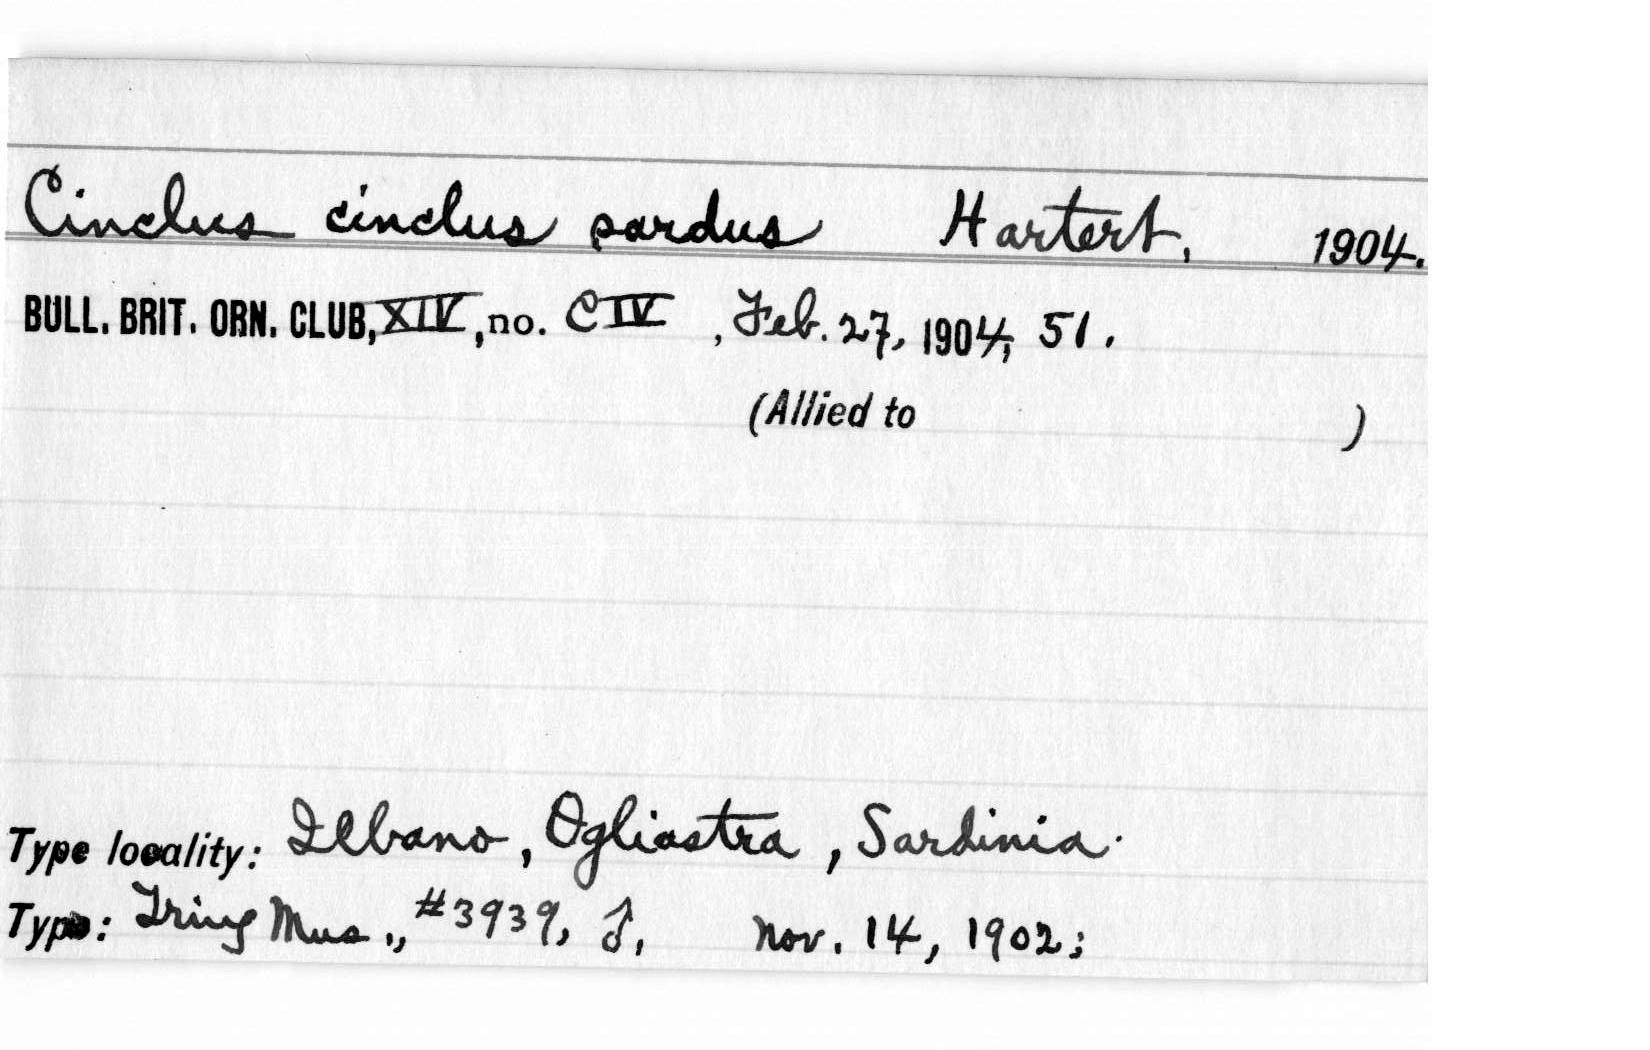 Cinclus cinclus sardus Hartert, 1904.
BULL. BRIT. ORN. CLUB, XIV, no. CIV, Feb. 27, 1904, 51.
(Allied to )
Type locality: Ilbano, Ogliastra, Sardinia.
Type: Tring Mus., #3939, ♂, Nov. 14, 1902;